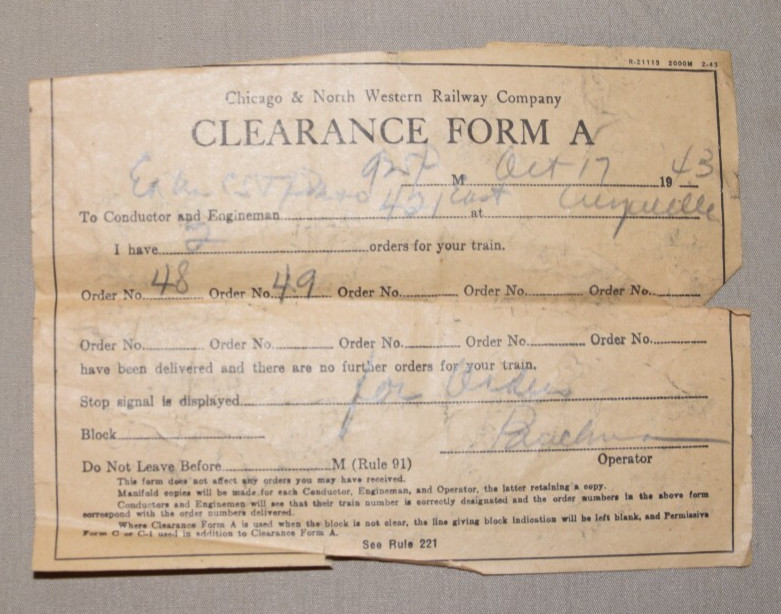 R-21113 2000M 2-43
Chicago & North Western Railway Company
CLEARANCE FORM A
M Oct 17 19 43
To Conductor and Engineman 421 East at
I have 2 orders for your train.
Order No. 48 Order No. 49 Order No. Order No. Order No.
Order No. Order No. Order No. Order No. Order No.
have been delivered and there are no further orders for your train.
Stop signal is displayed for Orders
Block
Operator
Do Not Leave Before M (Rule 91)
This form does not affect any orders you may have received.
Manifold copies will be made for each Conductor, Engineman, and Operator, the latter retaining a copy.
Conductors and Enginemen will see that their train number is correctly designated and the order numbers in the above form
correspond with the order numbers delivered.
Where Clearance Form A is used when the block is not clear, the line giving block indication will be left blank, and Permissive
Form C or C-1 used in addition to Clearance Form A.
See Rule 221